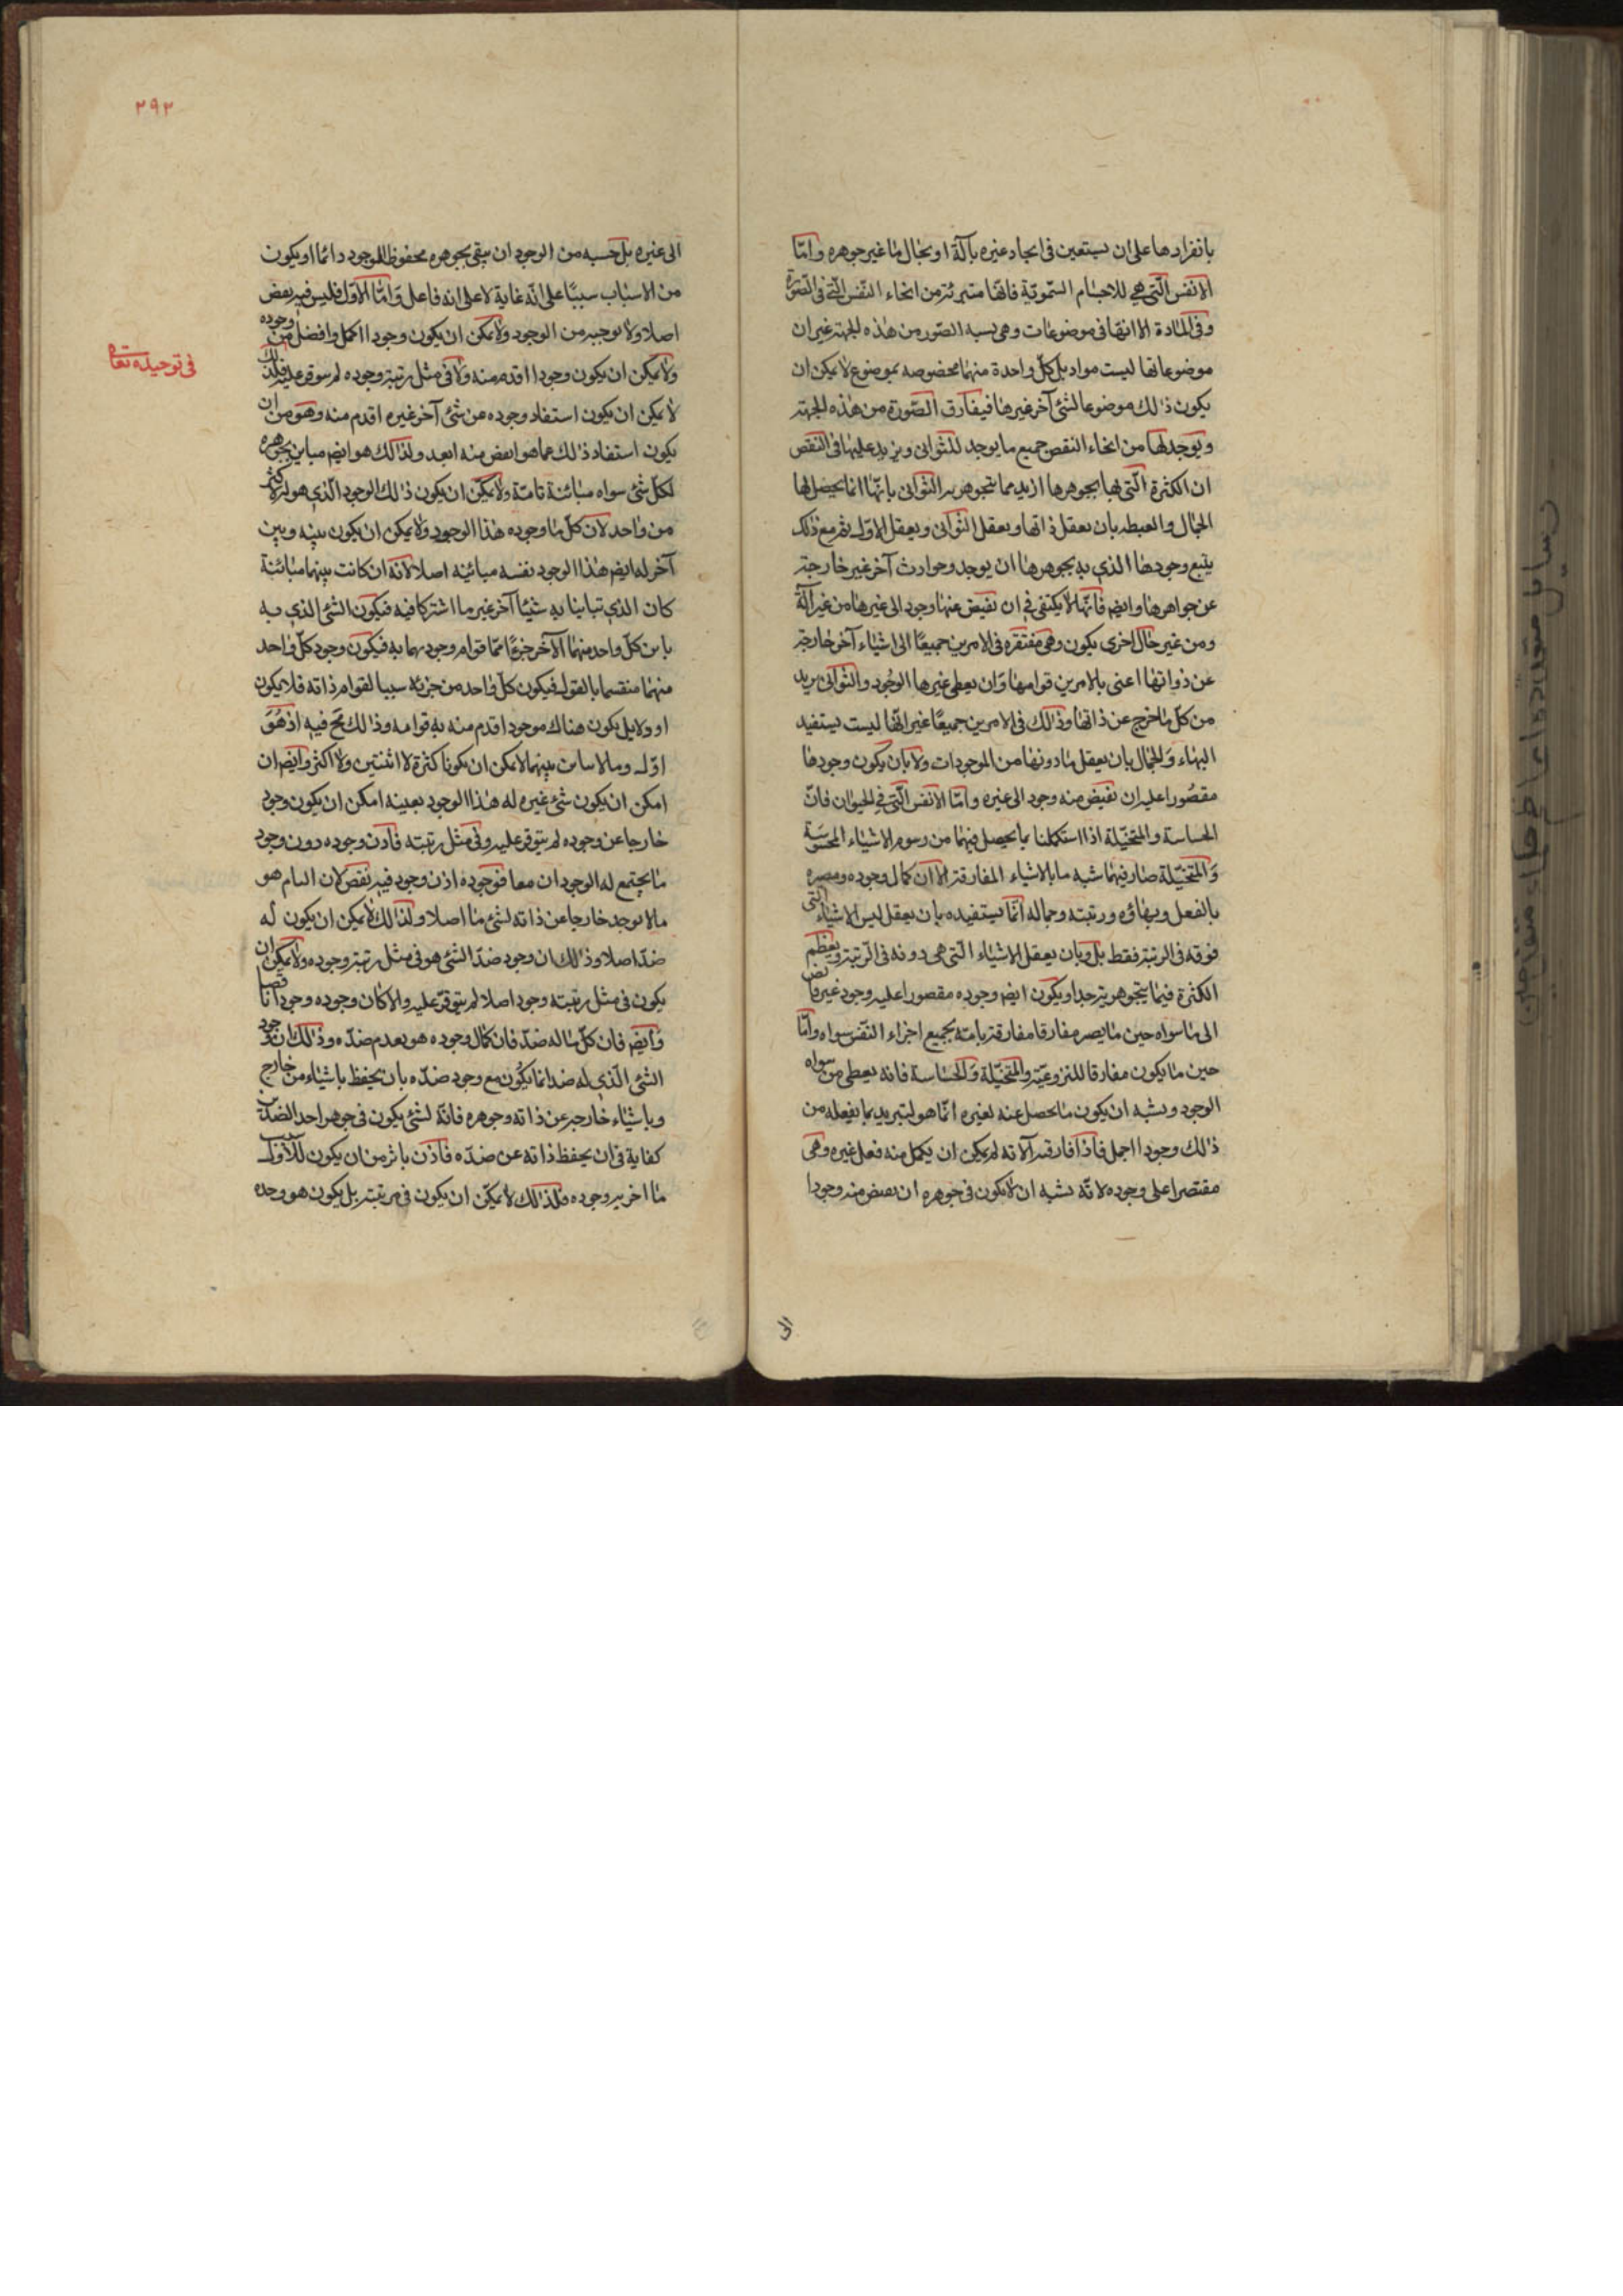 بانفرادها على ان يستعين فى ايجاد غيره بآلة او بحال ما غير جوهره وامّا
الانفس الّتى هى للاجسام السّمويّة فانّها متبرئة من انحاء النّقص الّتى فى الصّورة
وفى المادة الا انها فى موضوعات وهى يشبه الصّور من هذه الجهة غير ان
موضوعاتها ليست مواد بل كلّ واحدة منهما مخصوصه بموضوع لا يمكن ان
يكون ذلك موضوعا لشئ آخر غيرها فيفارق الصّورة من هذه الجهة
ويوجد لها من انحاء النقص جميع ما يوجد للثوانى ويزيد عليها فى النقص
ان الكثرة الّتى بها بجوهرها ازيد مما يتجوهر به الثوانى بانّها انما يحصل لها
الجمال والغبطه بان يعقل ذاتها ويعقل الثوانى ويعقل الاول ثم مع ذلك
يتبع وجودها الذى به بجوهرها ان يوجد وجودات آخر غير خارجة
عن جواهرها وايضا فانّها لا يكتفى فى ان يفيض عنها وجود الى غيرها من غير آلة
ومن غير حال اخرى يكون وهى مفتقره فى الامرين جميعًا الى اشياء آخر خارجة
عن ذواتها اعنى بالامرين قوامها وان يعطى غيرها الوجود والثوانى برية
من كلّ ما خرج عن ذاتها وذلك فى الامرين جميعًا غير انّها ليست يستفيد
البهاء والجمال بان يعقل ما دونها من الموجودات ولا بان يكون وجودها
مقصورا عليه ان يفيض منه وجود الى غيره وامّا الانفس الّتى فى الحيوان فانّ
الحساسة والمتخيّلة اذا استكملنا بما يحصل فيهما من رسوم الاشياء المحسوسة
والمتخيّلة صار فيهما شبه ما بالاشياء المفارقة الا ان كمال وجوده ومصيره
بالفعل وبهاؤه ورتبته وجماله انّما يستفيده بان يعقل ليس الاشياء الّتى
فوقه فى الرتبة فقط بل وبان يعقل الاشياء الّتى هى دونه فى الرّتبة ويعظم
الكثرة فيما يتجوهر به جدا ويكون ايضا وجوده مقصورا عليه وجود غير فائض
الى ما سواه حين ما يصير مفارقا مفارقة تامة بجميع اجزاء النّفس سواه وامّا
حين ما يكون مفارقا للنزوعيّة والمتخيّلة والحساسة فانه يعطى من سواه
الوجود ويشبه ان يكون ما يحصل عنه لغيره انّما هو ليتزيد بما يفعله من
ذلك وجودا اجمل فاذا فارقته آلاته لم يمكن ان يكمل منه فعل غيره وهى
مقتصرا على وجوده لانّه يشبه ان لا يكون فى جوهره ان يفيض منه وجودا
الى
٢٩٢
الى غيره بل حسبه من الوجود ان يبقى بجوهره محفوظ الوجود دائما او يكون
من الاسباب سببًا على انّه غاية لا على انه فاعل وامّا الاوّل فليس فيه نقص
اصلا ولا بوجه من الوجود ولا يمكن ان يكون وجودا اكمل وافضل من وجوده
ولا يمكن ان يكون وجودا اقدم منه ولا فى مثل رتبة وجوده لم يتوقر عليه فلذلك
لا يمكن ان يكون استفاد وجوده من شئ آخر غيره اقدم منه وهو من ان
يكون استفاد ذلك عما هو انقص منه ابعد ولذلك هو ايضا مباين بجوهره
لكلّ شئ سواه مبائنة تامّة ولا يمكن ان يكون ذلك الوجود الّذى هو له لاكثر
من واحد لان كلّ ما وجوده هذا الوجود ولا يمكن ان يكون بينه وبين
آخر له ايضا هذا الوجود نفسه مبائينه اصلا لانّه ان كانت بينهما مبائنة
كان الذى تباينا به شيئا آخر غير ما اشتركا فيه فيكون الشئ الذى به
باين كلّ واحد منهما الآخر جزءًا ممّا قوام وجودهما به فيكون وجود كلّ واحد
منهما منقسما بالقول فيكون كلّ واحد من جزئيه سببا لقوام ذاته فلا يكون
اولا بل يكون هناك موجود اقدم منه به قوامه وذلك مح فيه اذ هو
اوّل وما لا تباين بينهما لا يمكن ان يكونا كثرة لا اثنتين ولا اكثر وايضا ان
امكن ان يكون شئ غيره له هذا الوجود بعينه امكن ان يكون وجود
خارجا عن وجوده لم يتوقر عليه وفى مثل رتبته فاذن وجوده دون وجود
ما يجتمع له الوجود ان معا فوجوده اذن وجود فيه نقص لان التام هو
ما لا يوجد خارجا عن ذاته لشئ ما اصلا ولذلك لا يمكن ان يكون له
ضدّ اصلا وذلك ان وجود ضدّ الشئ هو فى مثل رتبة وجوده ولا يمكن ان
يكون فى مثل رتبته وجود اصلا لم يتوقر عليه والا كان وجوده وجودا ناقصا
وايضا فان كلّ ما له ضدّ فان كمال وجوده هو بعدم ضدّه وذلك ان وجود
الشئ الّذى له ضد انما يكون مع وجود ضدّه بان يحفظ باشياء من خارج
وباشياء خارجة عن ذاته وجوهره فانّه لشئ يكون فى جوهر احد الضدّين
كفاية فى ان يحفظ ذاته عن ضدّه فاذن يلزم من ان يكون للاوّل
ما اخر به وجوده فلذلك لا يمكن ان يكون فى مرتبته بل يكون هو وحده
فى توحيده تعالى